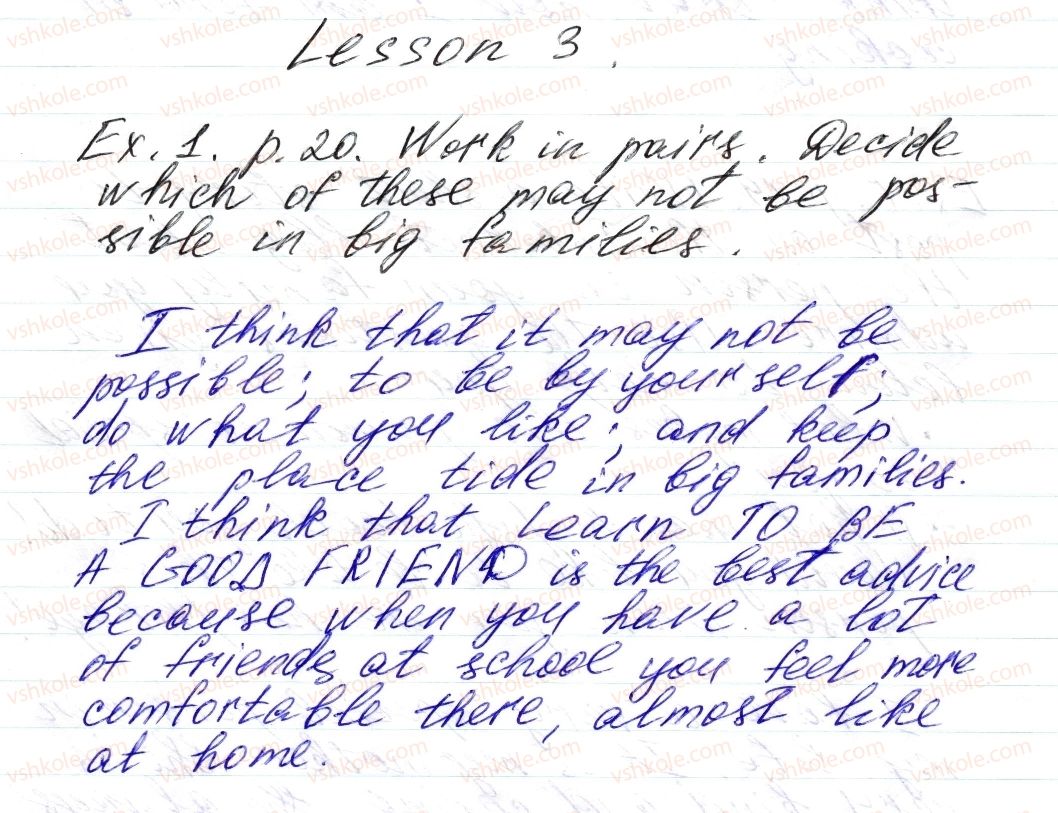 Lesson 3.
Ex. 1. p. 20. Work in pairs. Decide
which of these may not be pos-
sible in big families.
I think that it may not be
possible; to be by yourself;
do what you like; and keep
the place tide in big families.
I think that Learn TO BE
A GOOD FRIEND is the best advice
because when you have a lot
of friends at school you feel more
comfortable there, almost like
at home.